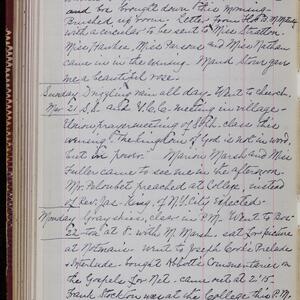 and be brought down this morning.
Brushed up room. Letter from
with a circular to be sent to Miss Stratton.
Miss Hawkes, Miss Parsons and Miss Nathan
came in in the evening. Maud Stow gave
me a beautiful rose.
Sunday Drizzling rain all day. Went to church.
Nov. and meeting in village.
Union prayer meeting of class this
evening. "The Kingdom of God is not in word,
but in power." Marion Marsh and Miss
Fuller came to see me in the afternoon.
Mr. Peloubet preached at College, instead
of Rev. Jas. King, of N.Y. City expected.
Monday Gray skies, clear in P.M. Went to Bos-
ton at with M. Marsh. Sat for picture
at Notman's. Went to Joseph Cook's Prelude
& Interlude. Bought Abbott's Commentaries on
the Gospels for Net. Came out at 2.15.
Frank Stockton was at the College this P.M.